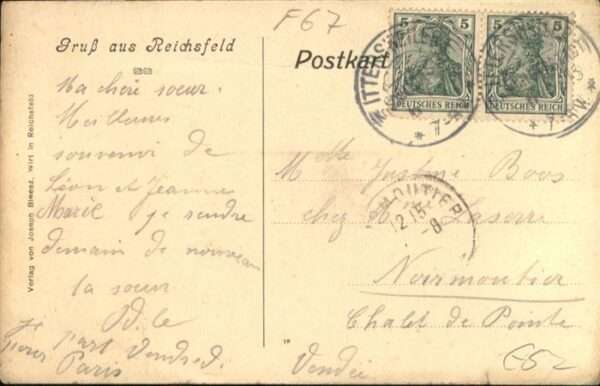 F67
Gruß aus Reichsfeld
Postkart
5 5
5 5
DEUTSCHES REICH
DEUTSCHES REICH
ITTERSWEILER
Verlag von Joseph Bleesz, Wirt in Reichsfeld
Ma chère soeur.
Meilleurs
souvenir de
Léon et Jeanne
Marie je rendre
demain de nouveau
ta soeur
part Vendred.
Paris
Mlle Justine Boos
chez Mr Laserre
Noirmoutier
Chalet de Pointe
Vendée
MOUTIER
12 15
-8